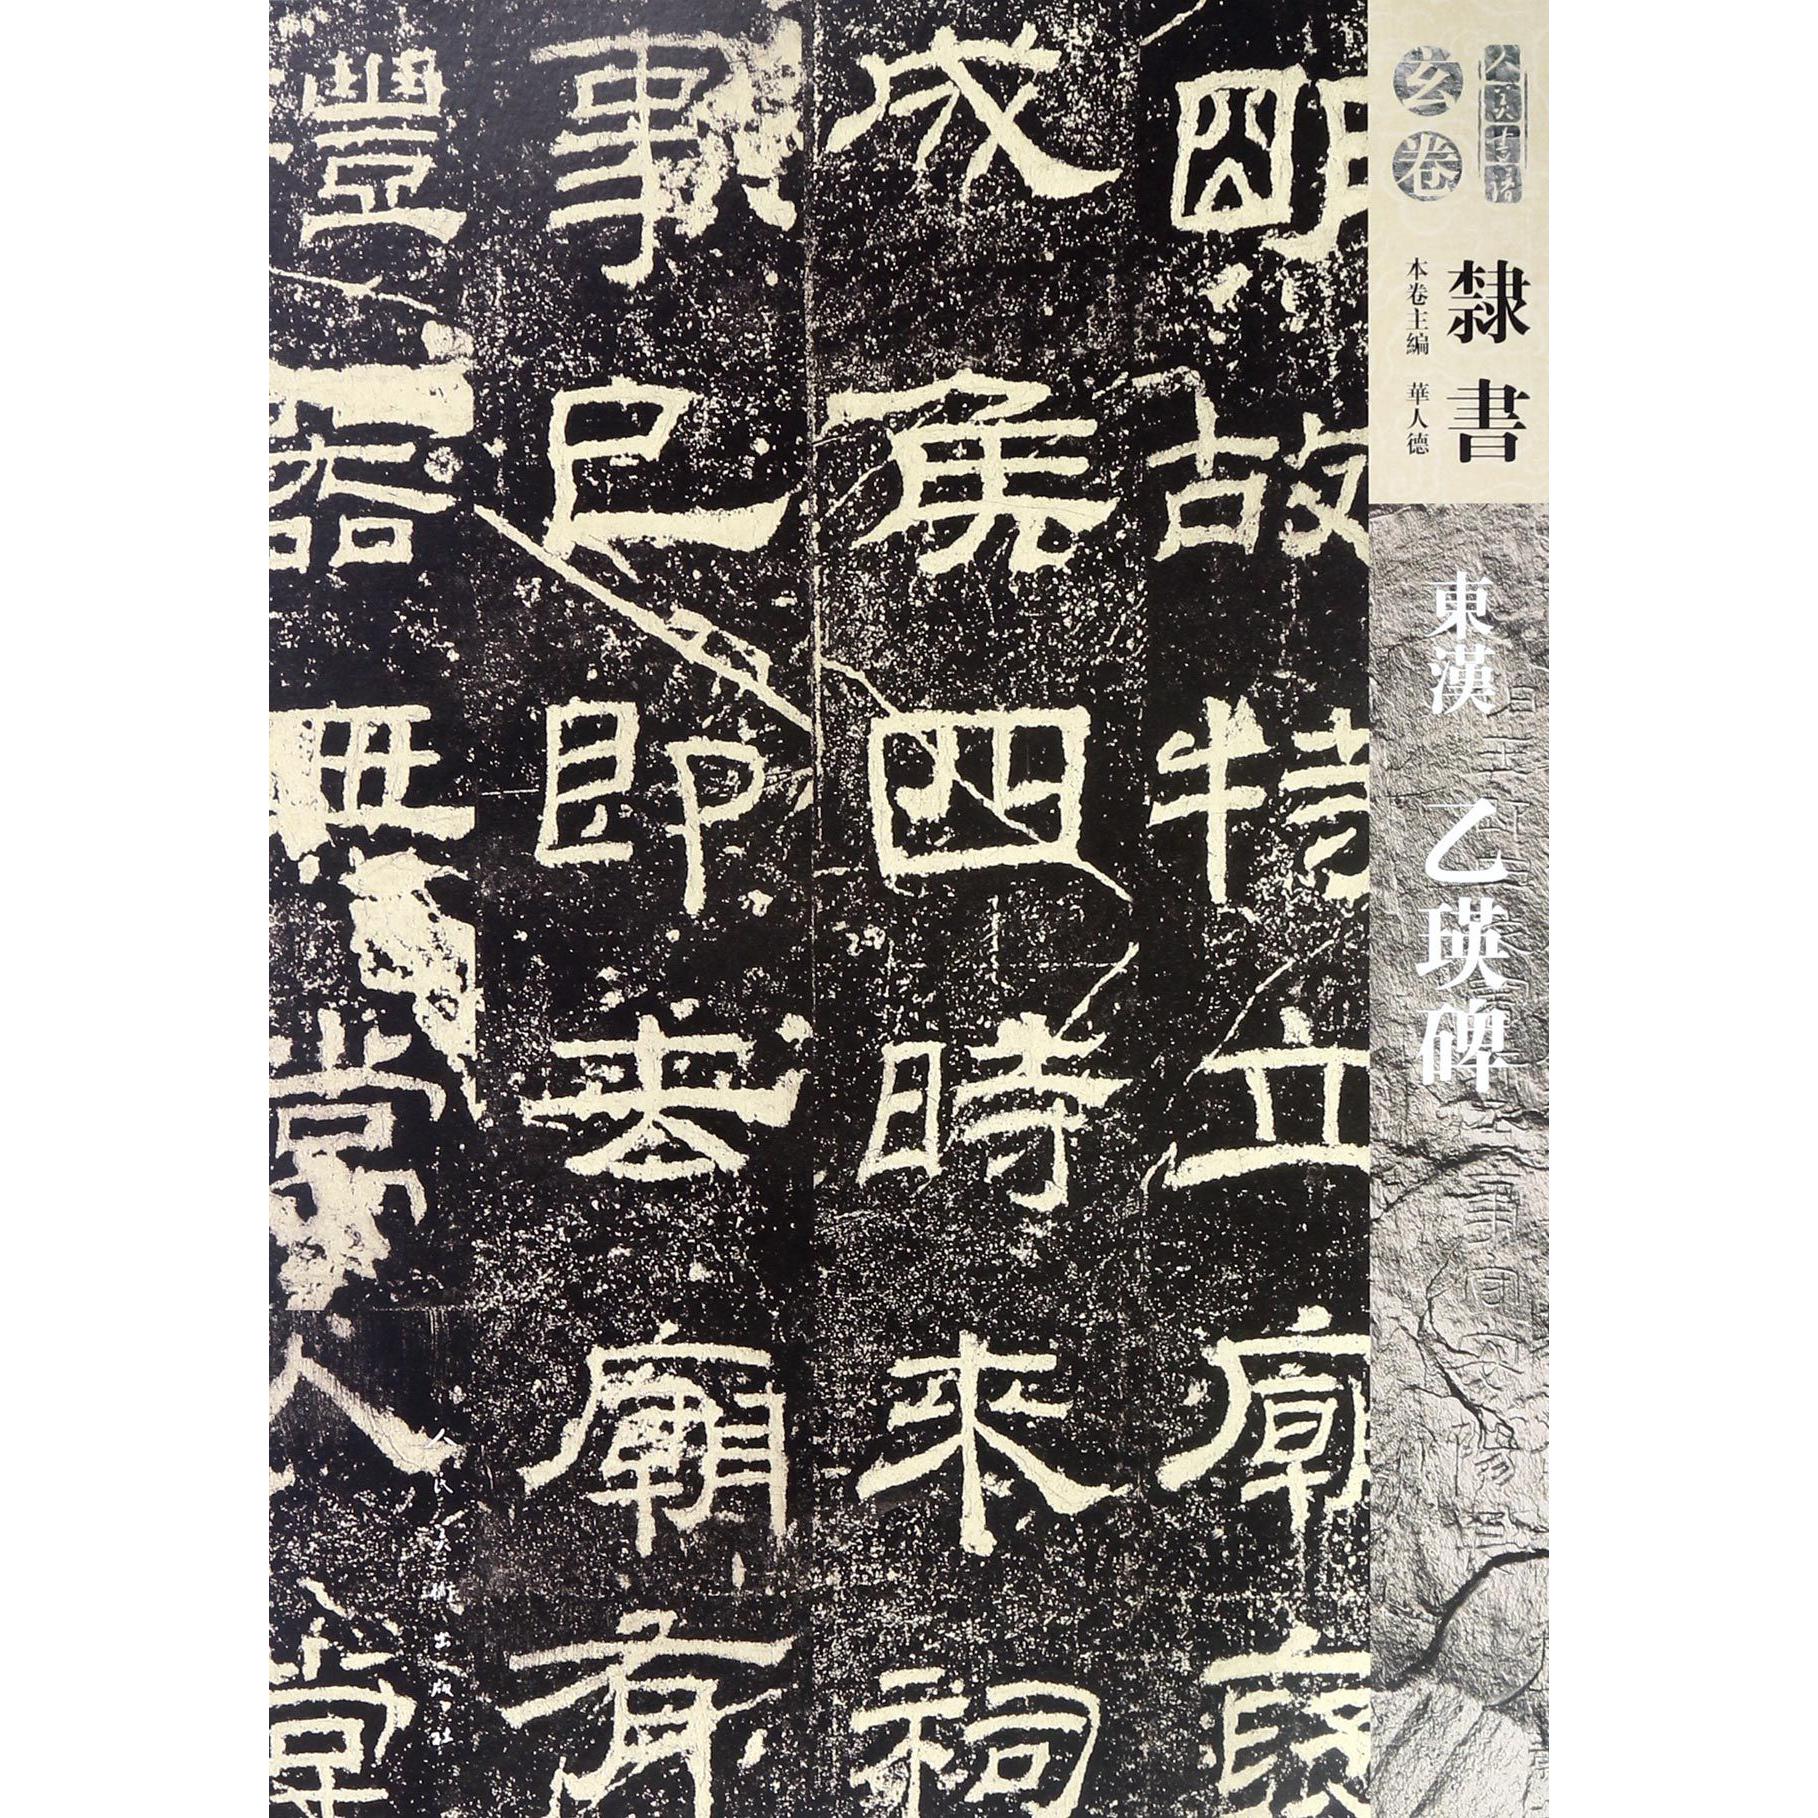 人美書譜
玄卷
隸書
本卷主編 華人德
東漢 乙瑛碑
明故特立廟褒
成侯四時來祠
事已即去廟有
禮器無常人掌
人民美術出版社